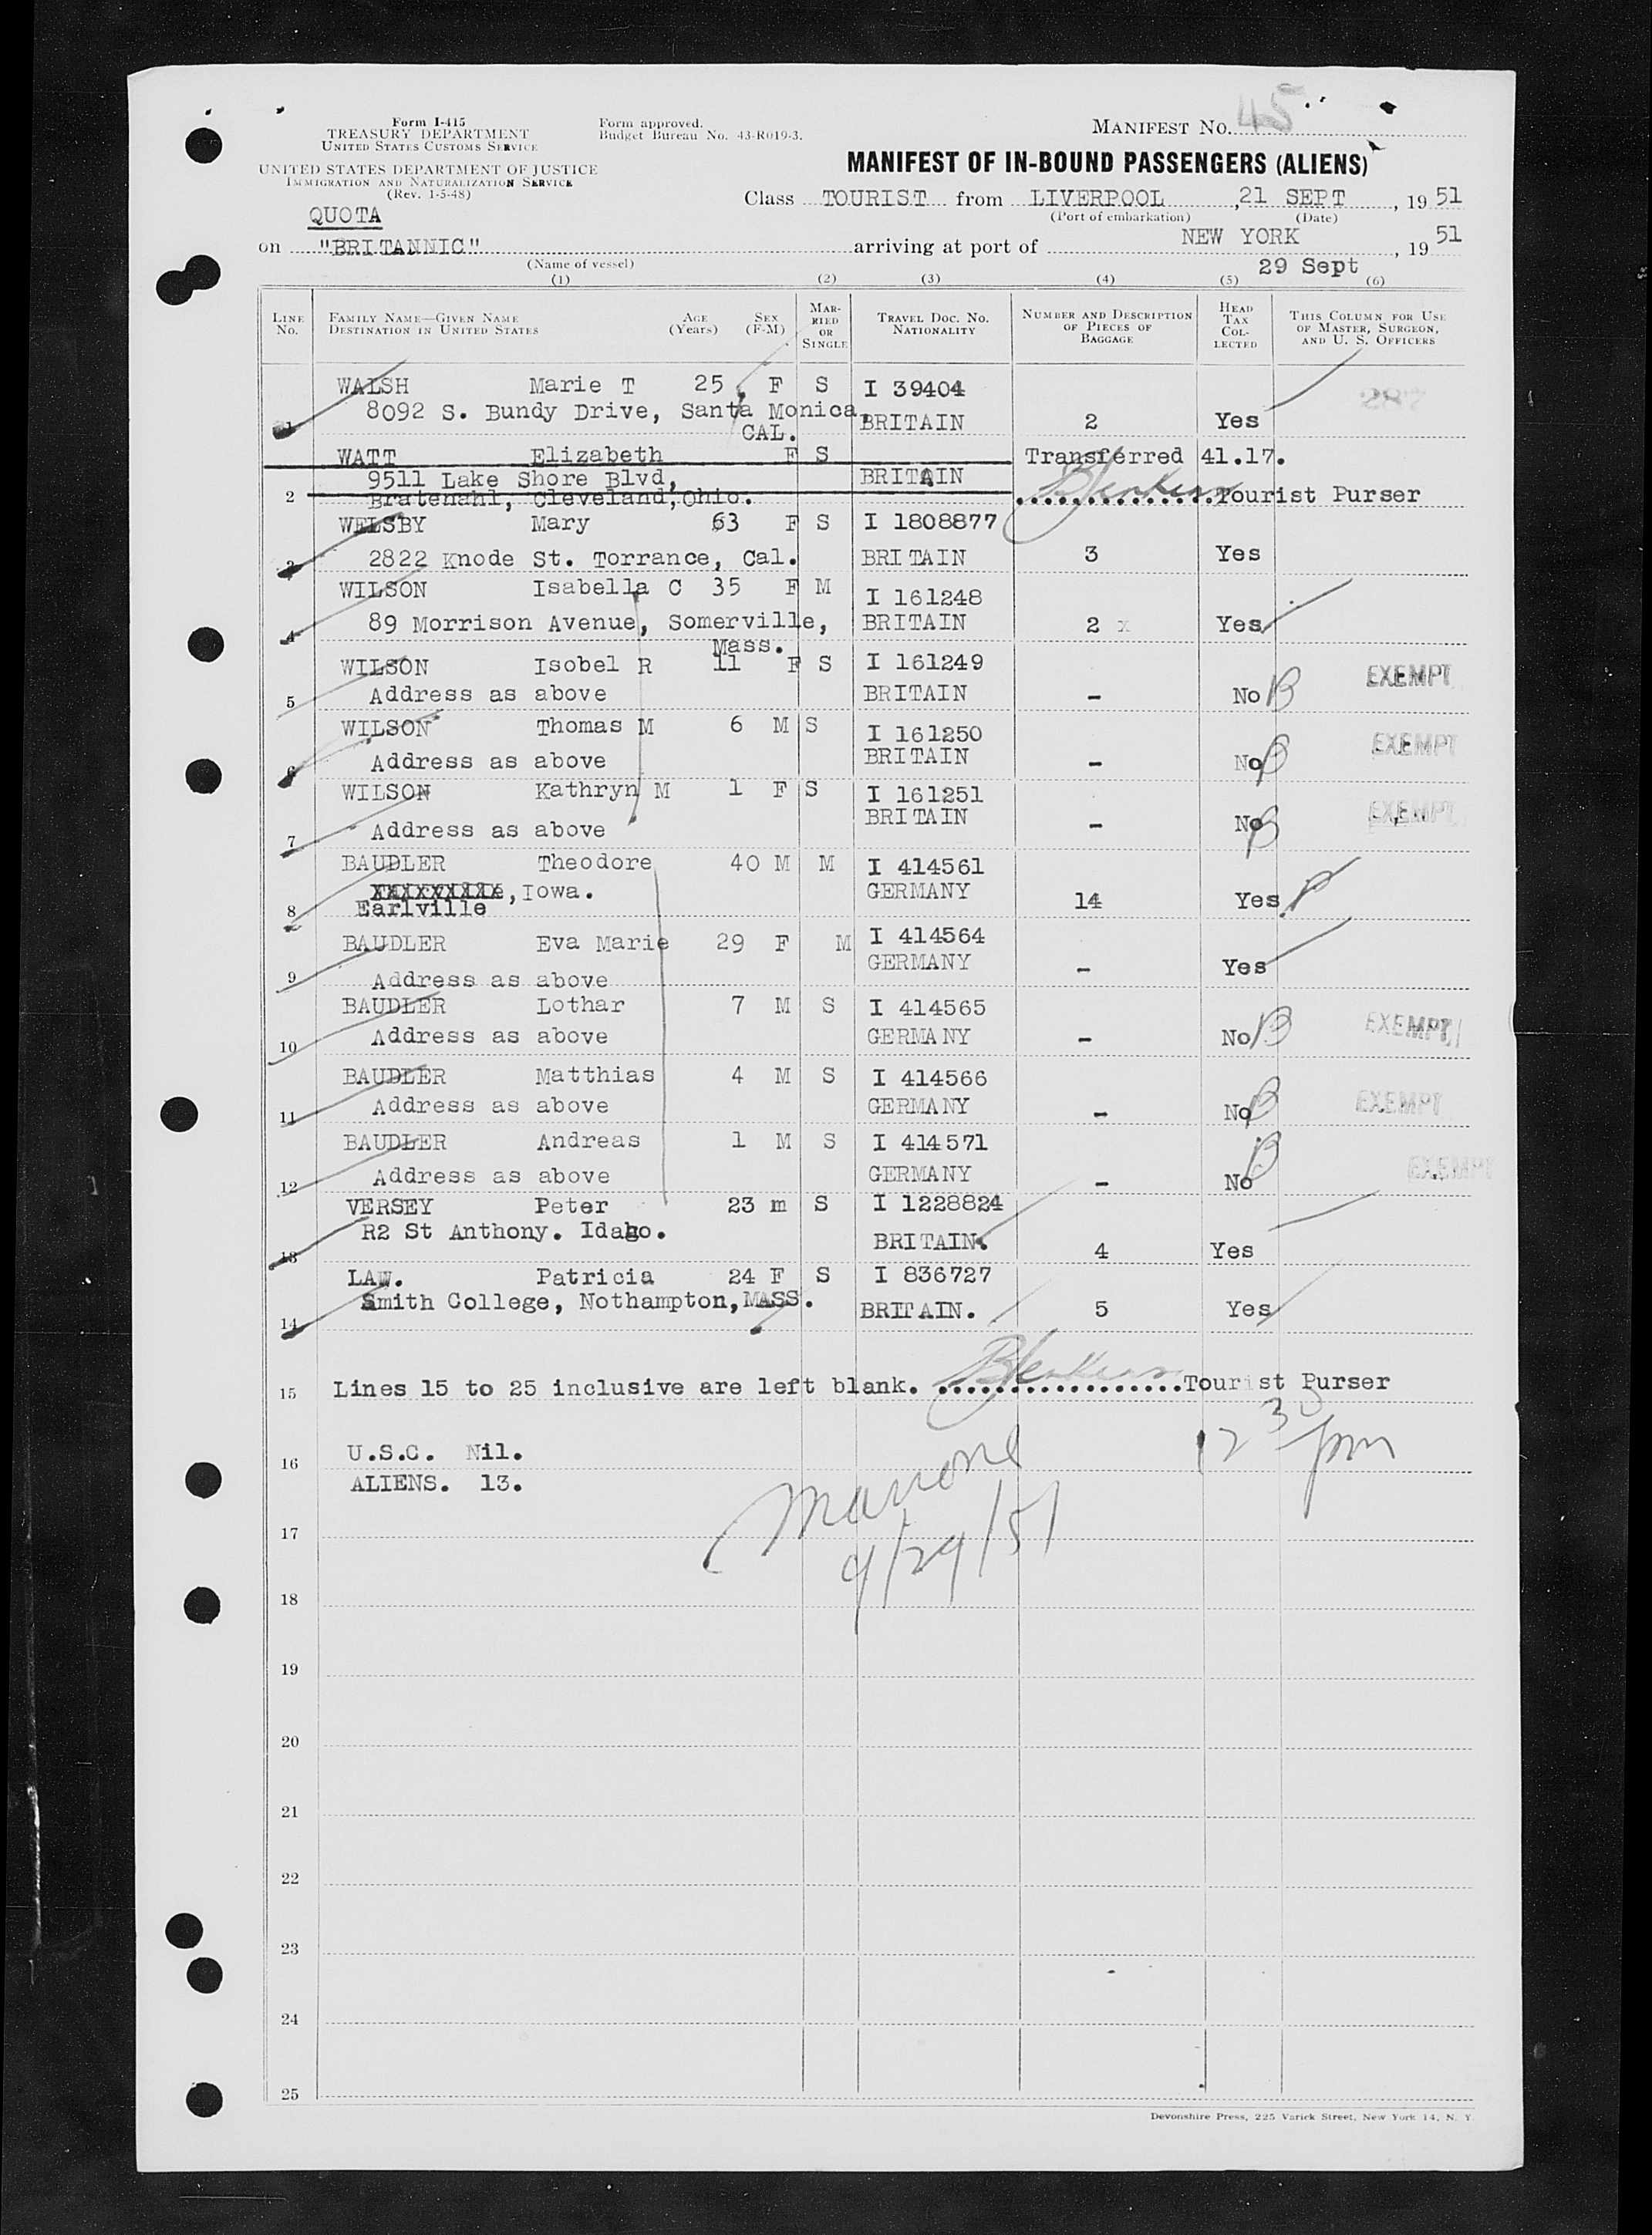 45
Form I-415
TREASURY DEPARTMENT
UNITED STATES CUSTOMS SERVICE
Form approved.
Budget Bureau No. 43-R019-3.
MANIFEST NO.
UNITED STATES DEPARTMENT OF JUSTICE
IMMIGRATION AND NATURALIZATION SERVICE
(Rev. 1-5-48)
MANIFEST OF IN-BOUND PASSENGERS (ALIENS)
Class TOURIST from LIVERPOOL, 21 SEPT, 1951
(Port of embarkation) (Date)
QUOTA
on "BRITANNIC" arriving at port of NEW YORK, 1951
(Name of vessel) 29 Sept
(1) (2) (3) (4) (5) (6)
LINE No. FAMILY NAME—GIVEN NAME DESTINATION IN UNITED STATES AGE (Years) SEX (F-M) MARRIED OR SINGLE TRAVEL DOC. NO. NATIONALITY NUMBER AND DESCRIPTION OF PIECES OF BAGGAGE HEAD TAX COLLECTED THIS COLUMN FOR USE OF MASTER, SURGEON, AND U. S. OFFICERS
WALSH Marie T 25 F S I 39404
1 8092 S. Bundy Drive, Santa Monica, BRITAIN 2 Yes
CAL.
WATT Elizabeth F S Transferred 41.17.
9511 Lake Shore Blvd, BRITAIN
2 Bratenahl, Cleveland, Ohio. Tourist Purser
WELSBY Mary 63 F S I 1808877
3 2822 Knode St. Torrance, Cal. BRITAIN 3 Yes
WILSON Isabella C 35 F M I 161248
4 89 Morrison Avenue, Somerville, BRITAIN 2 x Yes
Mass.
WILSON Isobel R 11 F S I 161249 EXEMPT
5 Address as above BRITAIN - No B
WILSON Thomas M 6 M S I 161250 EXEMPT
6 Address as above BRITAIN - No B
WILSON Kathryn M 1 F S I 161251 EXEMPT
7 Address as above BRITAIN - No B
BAUDLER Theodore 40 M M I 414561
, Iowa. GERMANY 14 Yes
8 Earlville
BAUDLER Eva Marie 29 F M I 414564
9 Address as above GERMANY - Yes
BAUDLER Lothar 7 M S I 414565 EXEMPT
10 Address as above GERMANY - No B
BAUDLER Matthias 4 M S I 414566
11 Address as above GERMANY - No B EXEMPT
BAUDLER Andreas 1 M S I 414571
12 Address as above GERMANY - No B EXEMPT
VERSEY Peter 23 m S I 1228824
13 R2 St Anthony. Idaho. BRITAIN. 4 Yes
LAW. Patricia 24 F S I 836727
14 Smith College, Nothampton, MASS. BRITAIN. 5 Yes
15 Lines 15 to 25 inclusive are left blank. Tourist Purser
12 30 pm
16 U.S.C. Nil.
ALIENS. 13.
17
9/29/51
18
19
20
21
22
23
24
25
Devonshire Press, 225 Varick Street, New York 14, N. Y.